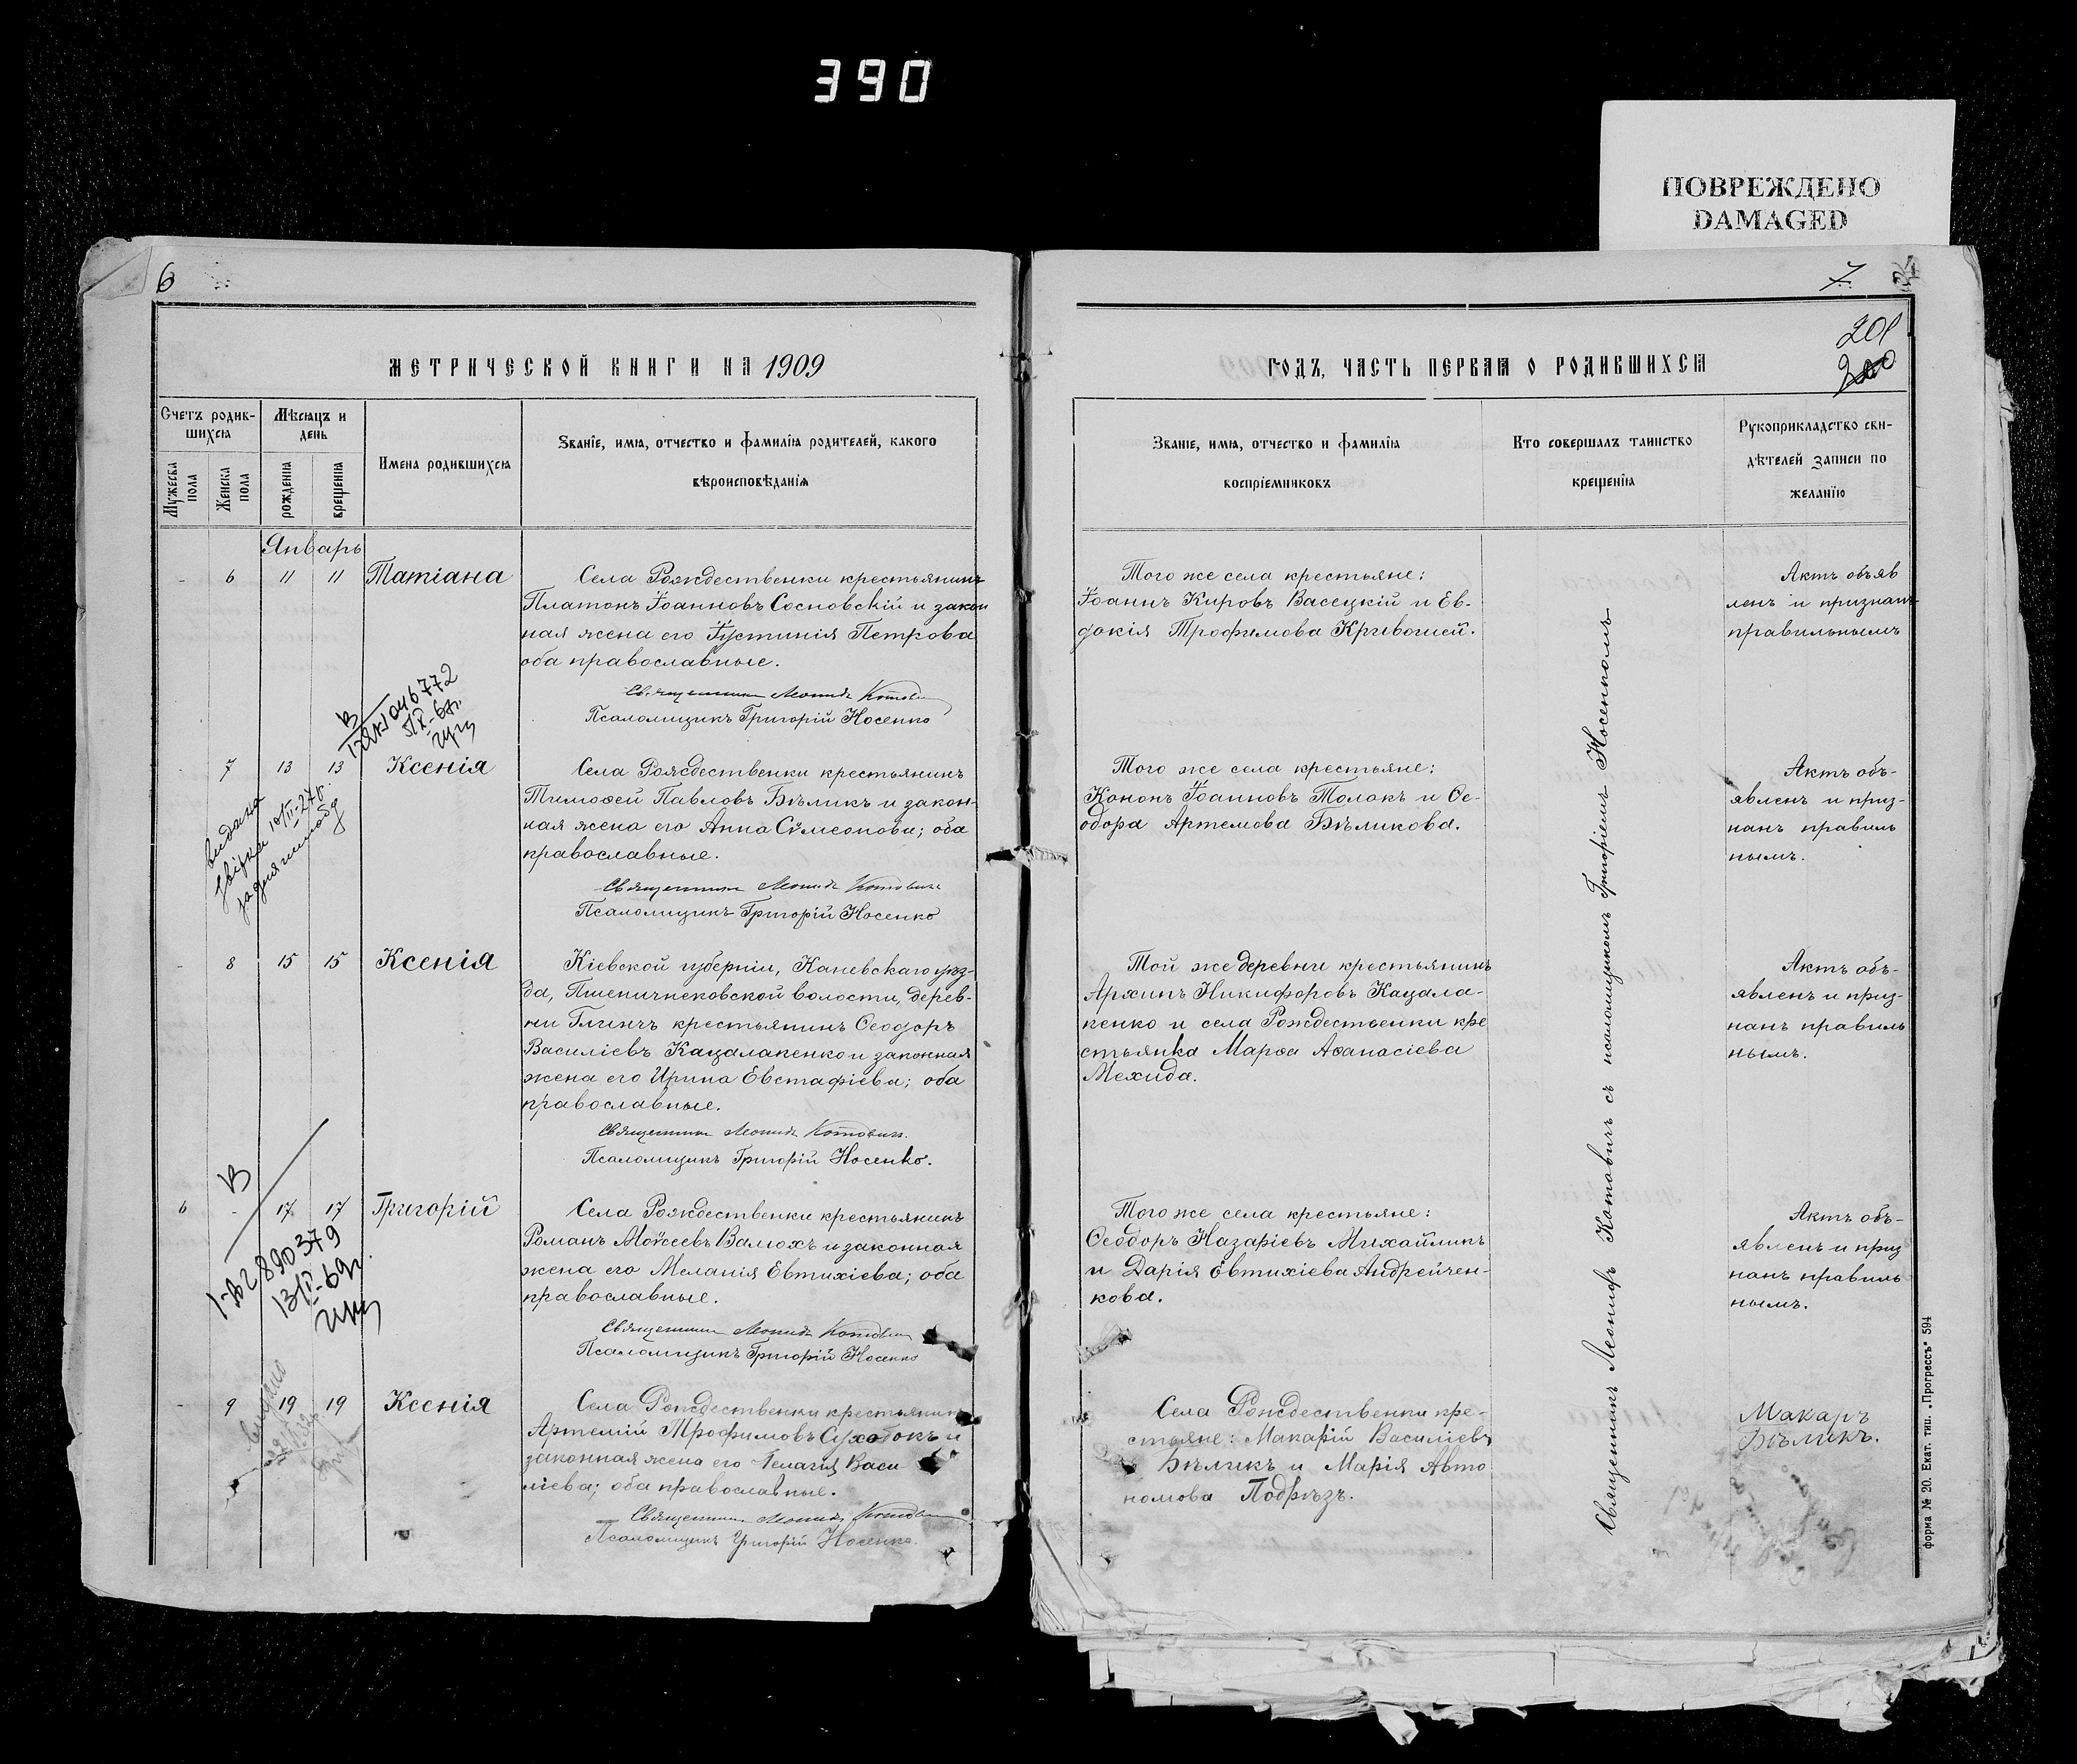 390
ПОВРЕЖДЕНО
DAMAGED
6
МЕТРИЧЕСКОЙ КНИГИ НА 1909
Счетъ родив-
шихся
Мѣсяцъ и
день
Мужеска
пола
Женска
пола
рожденія
крещенія
Имена родившихся
Званіе, имя, отчество и фамилія родителей, какого
вѣроисповѣданія
Январь
- 6 11 11 Татіана
Села Рождественки крестьянинъ
Платонъ Іоанновъ Сосновскій и закон
ная жена его Іустинія Петрова
оба православные.
Священникъ Леонидъ Котович
Псаломщикъ Григорій Носенко
- 7 13 13 Ксенія
Села Рождественки крестьянинъ
Тимоѳей Павловъ Бѣликъ и закон-
ная жена его Анна Сѵмеонова; оба
православные.
Священникъ Леонидъ Котовичъ
Псаломщикъ Григорій Носенко
- 8 15 15 Ксенія
Кіевской губерніи, Каневскаго уѣз-
да, Пшеничнековской волости, дерев-
ни Глинчъ крестьянинъ Ѳеодоръ
Василіевъ Кацалапенко и законная
жена его Ирина Евстафіева; оба
православные.
Священникъ Леонидъ Котовичъ.
Псаломщикъ Григорій Носенко.
В
6 - 17 17 Григорій
Села Рождественки крестьянинъ
Романъ Моѵсеевъ Валюхъ и законная
жена его Меланія Евтихіева; оба
православные.
Священникъ Леонидъ Котович
Псаломщикъ Григорій Носенко
- 9 19 19 Ксенія
Села Рождественки крестьянинъ
Артемій Трофимовъ Суховокъ и
законная жена его Пелагія Васи
ліева; оба православные.
Священникъ Леонидъ Котович
Псаломщикъ Григорій Носенко.
7
201
200
ГОДЪ, ЧАСТЬ ПЕРВАЯ О РОДИВШИХСЯ
Званіе, имя, отчество и фамилія
воспріемниковъ
Кто совершалъ таинство
крещенія
Рукоприкладство сви-
дѣтелей записи по
желанію
Того же села крестьяне:
Іоаннъ Кировъ Васецкій и Ев-
докія Трофимова Кривошей.
Актъ объяв
ленъ и признанъ
правильнымъ
Того же села крестьяне:
Кононъ Іоанновъ Толокъ и Ѳе-
одора Артемова Бѣликова.
Актъ объ-
явленъ и приз-
нанъ правиль
нымъ.
Той же деревни крестьянинъ
Архипъ Никифоровъ Кацала-
пенко и села Рождественки кре
стьянка Марѳа Аѳанасіева
Мехида.
Актъ объ-
явленъ и приз-
нанъ правиль
нымъ.
Того же села крестьяне:
Ѳеодоръ Назаріевъ Михайликъ
и Дарія Евтихіева Андрейчен-
кова.
Актъ объ-
явленъ и приз
нанъ правиль
нымъ.
Села Рождественки кре-
стьяне: Макарій Василіевъ
Бѣликъ и Марія Авто
номова Подрѣзъ.
Макаръ
Бѣликъ.
Священникъ Леонидъ Котовичъ съ псаломщикомъ Григоріемъ Носенкомъ
форма № 20. Екат. тип. „Прогрессъ" 594